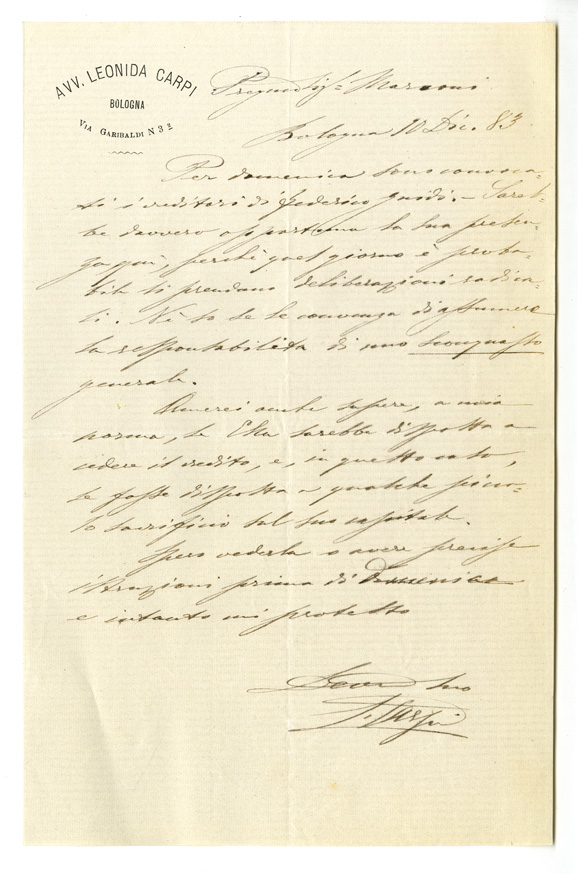 AVV. LEONIDA CARPI
BOLOGNA
VIA GARIBALDI N 3 2
Pregmo Sigr Marconi
Bologna 10 Dic. 83
Per domenica sono convoca-
ti i creditori di Federico Guidi. — Sareb-
be davvero opportuna la sua presen-
za qui, perchè quel giorno è proba-
bile si prendano deliberazioni radica-
li. Nè so se le convenga di assumere
la responsabilità di uno sconquasso
generale.
Amerei anche sapere, a mia
norma, se Ella sarebbe disposta a
cedere il credito, e, in questo caso,
se fosse disposta a qualche picco-
lo sacrificio sul suo capitale.
Spero vederla o avere precise
istruzioni prima di Domenica
e intanto mi protesto
Devmo suo
L. Carpi